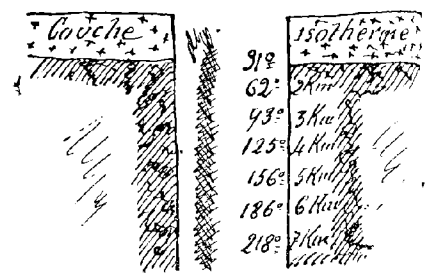 Couche isotherme
91º
62º 2Km
93º 3Km
125º 4Km
156º 5Km
186º 6Km
218º 7Km